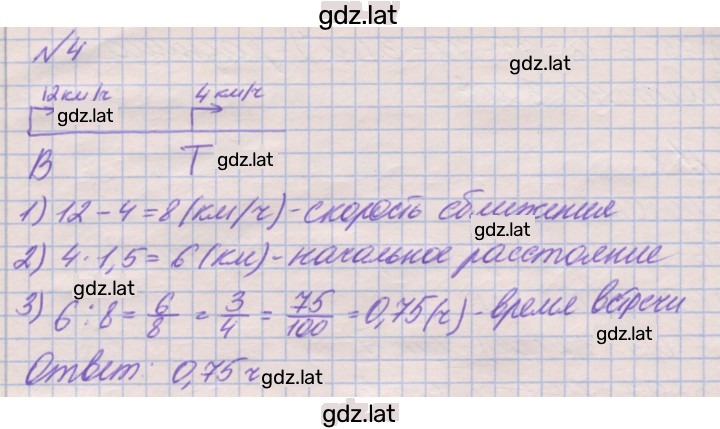 gdz.lat
№4
gdz.lat
12км/ч 4км/ч
gdz.lat
В Т gdz.lat
1) 12-4=8(км/ч)-скорость сближения
gdz.lat
2) 4·1,5=6(км)-начальное расстояние
gdz.lat
3) 6:8=6/8=3/4=75/100=0,75(ч)-время встречи
gdz.lat
Ответ: 0,75 ч
gdz.lat
gdz.lat